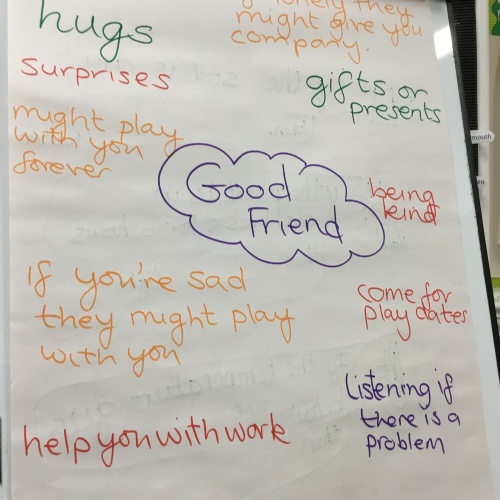 hugs
lonely they
might give you
company.
surprises
gifts or
presents
might play
with you
forever
Good
Friend
being
kind
If you're sad
they might play
with you
come for
play dates
listening if
there is a
problem
help you with work
mouth